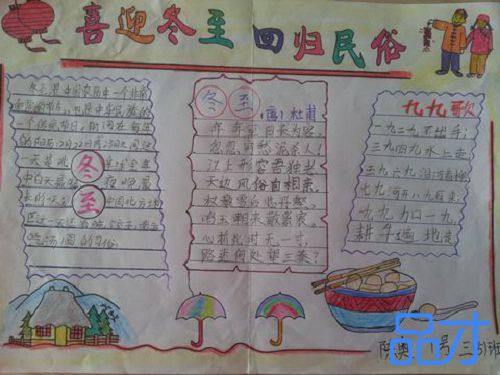 喜迎冬至 回归民俗
冬至是中国农历中一个非常
重要的节日,也是中华民族的
一个传统节日,时间在每年
的阳历12月21日至23日之间,这
一天是北
白天最
长的一天,中国北方
冬至
吃汤圆的习俗。
冬至
(唐)杜甫
年年至日长为客,
忽忽穷愁泥杀人!
江上形容吾独老,
天边风俗自相亲。
杖藜雪后临丹壑,
鸣玉朝来散紫宸。
心折此时无一寸,
路迷何处望三秦?
九九歌
一九二九不出手;
三九四九冰上走;
五九六九沿河看柳;
七九河开八九雁来;
九九加一九,
耕牛遍地走。
陈奥 1号 三(5)班
品才